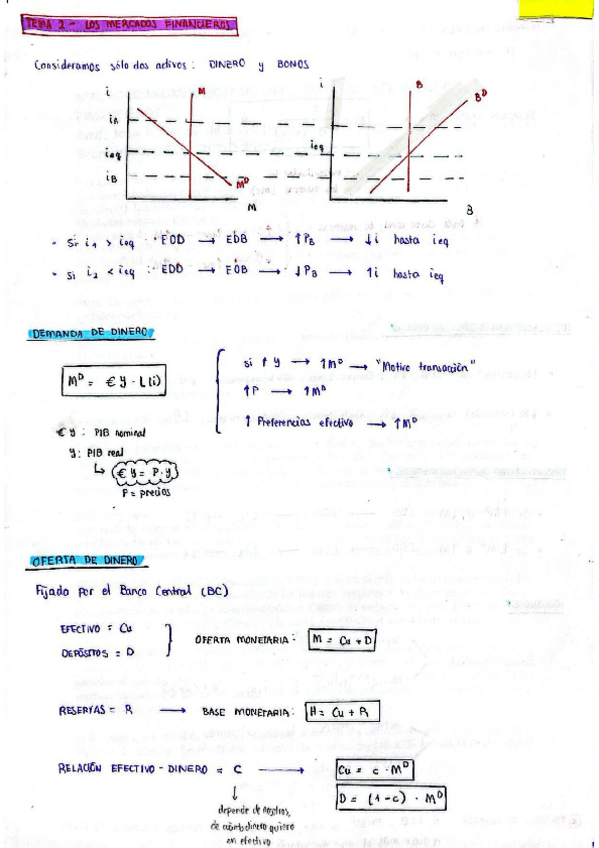 TEMA 2 - LOS MERCADOS FINANCIEROS
Consideramos sólo dos activos: DINERO y BONOS
i M i B B^D
i_A
i_eq i_eq
i_B M^D
M B
- Si i_1 > i_eq : EOD → EDB → ↑P_B → ↓i hasta i_eq
- Si i_2 < i_eq : EDD → EOB → ↓P_B → ↑i hasta i_eq
DEMANDA DE DINERO
M^D = €Y · L(i)
si ↑ Y → ↑M^D → "Motivo transacción"
↑P → ↑M^D
↑ Preferencias efectivo → ↑M^D
€Y : PIB nominal
Y: PIB real
↳ €Y = P·Y
P = precios
OFERTA DE DINERO
Fijada por el Banco Central (BC)
EFECTIVO = Cu
DEPÓSITOS = D
OFERTA MONETARIA: M = Cu + D
RESERVAS = R → BASE MONETARIA: H = Cu + R
RELACIÓN EFECTIVO - DINERO = C → Cu = c · M^D
D = (1-c) · M^D
↓
depende de nosotros,
de cuánto dinero quiero
en efectivo